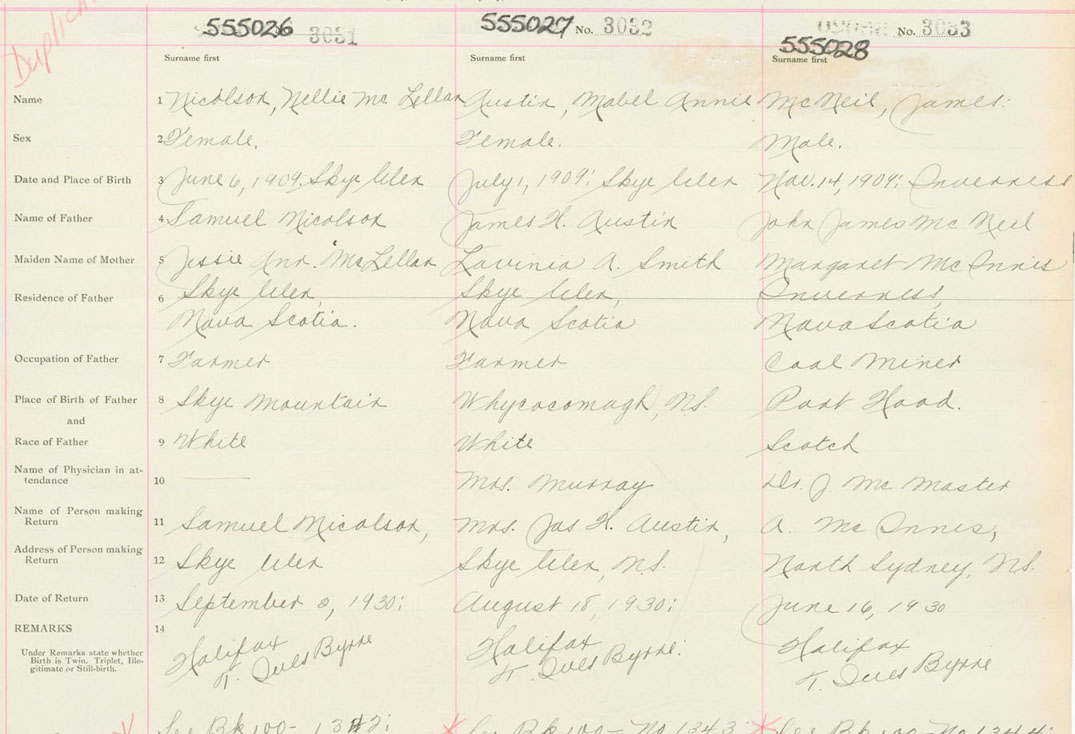 Duplicate
555026 3031 555027 No. 3032 555028 No. 3033
Surname first Surname first Surname first
Name 1 Nicolson, Nellie Mc Lellan Austin, Mabel Annie McNeil, James.
Sex 2 Female. Female. Male.
Date and Place of Birth 3 June 6, 1909: Skye Glen July 1, 1909: Skye Glen Nov. 14, 1909: Inverness
Name of Father 4 Samuel Nicolson James H. Austin John James Mc Neil
Maiden Name of Mother 5 Jessie Ann. McLellan Lavinia A. Smith Margaret Mc Innis
Residence of Father 6 Skye Glen, Skye Glen, Inverness,
Nova Scotia. Nova Scotia Nova Scotia
Occupation of Father 7 Farmer Farmer Coal Miner
Place of Birth of Father 8 Skye Mountain Whycocomagh, N.S. Port Hood.
and
Race of Father 9 White White Scotch
Name of Physician in at-
tendance 10 Mrs. Murray Dr. J. Mc Master
Name of Person making
Return 11 Samuel Nicolson, Mrs. Jas H. Austin, A. Mc Innis,
Address of Person making
Return 12 Skye Glen Skye Glen, N.S. North Sydney, N.S.
Date of Return 13 September 2, 1930: August 18, 1930: June 16, 1930
REMARKS 14
Under Remarks state whether
Birth is Twin, Triplet, Ille-
gitimate or Still-birth.
Halifax Halifax Halifax
T. Ives Byrne T. Ives Byrne. T. Ives Byrne
See Bk 100- 1342: See Bk 100- No 1343: See Bk 100- No 1344: